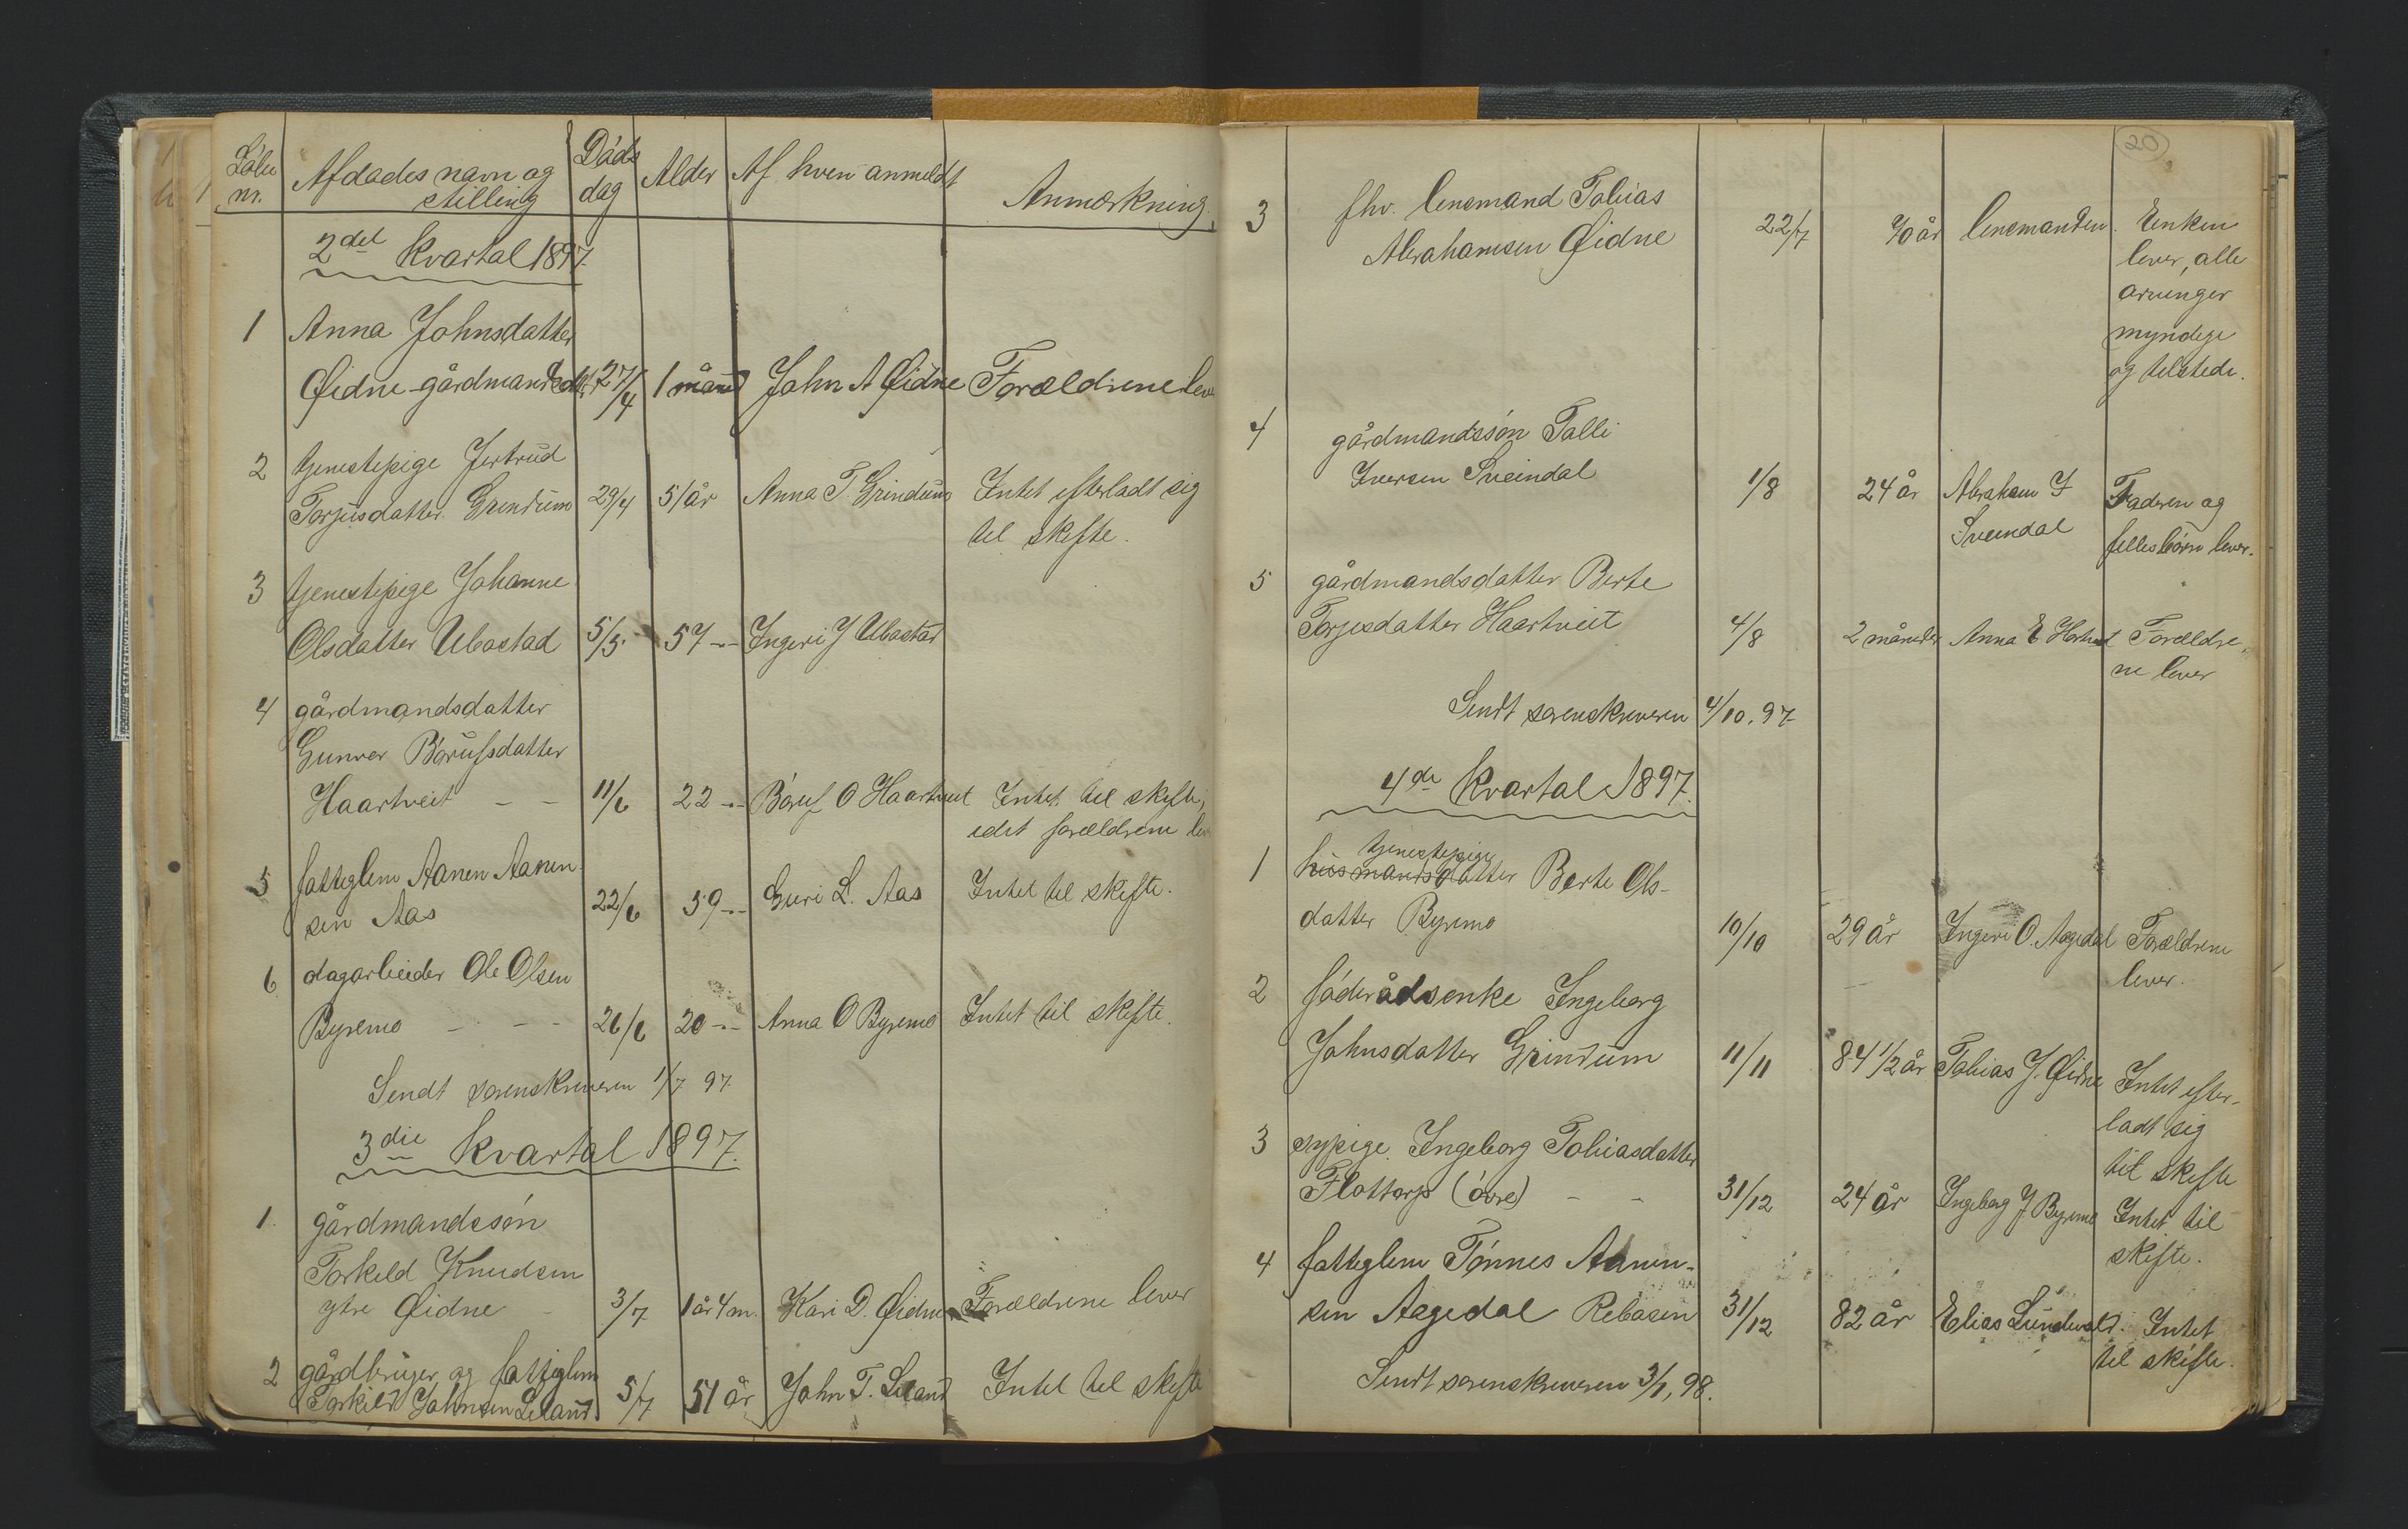 Løbe nr. Afdødes navn og stilling Døds dag Alder Af hvem anmeldt Anmærkning.
2det kvartal 1897.
1 Anna Johnsdatter
Øidne gårdmandsdtr 27/4 1 måned John A Øidne Forældrene lever
2 tjenestepige Jertrud
Torjusdatter Grindum 29/4 51 år Anna T. Grindum Intet efterladt sig
til skifte.
3 tjenestepige Johanne
Olsdatter Ubostad 5/5 57 -"- Ingeri J Ubostad
4 gårdmandsdatter
Gunvor Børufsdatter
Haartveit - - 11/6 22 -"- Børuf O Haartveit Intet til skifte,
idet forældrene lever
5 fattiglem Aanen Aanen-
sen Aas 22/6 59 -"- Guri L. Aas Intet til skifte.
6 dagarbeider Ole Olsen
Byremo - - - 26/6 20 -"- Anna O Byremo Intet til skifte.
Sendt sorenskriveren 1/7 97.
3die kvartal 1897.
1. gårdmandssøn
Torkeld Knudsen
ytre Øidne - 3/7 1 år 4 m. Kari D. Øidne Forældrene lever
2 gårdbruger og fattiglem
Torkild Johnsen Leland 5/7 51 år John T. Leland Intet til skifte
20
3 fhv. lensmand Tobias
Abrahamsen Øidne 22/7 70 år lensmanden. Enken
lever, alle
arvinger
myndige
og tilstede.
4 gårdmandssøn Tolli
Iversen Sveindal 1/8 24 år Abraham I
Sveindal Faderen og
fellesbørn lever.
5 gårdmandsdatter Berte
Torjusdatter Haartveit 4/8 2 måneder Anna E Hortveit Forældre-
ne lever
Sendt sorenskriveren 4/10. 97.
4de kvartal 1897.
tjenestepige
1 husmandsdatter Berte Ols-
datter Byremo 10/10 29 år Ingeri O. Aagedal Forældrene
lever.
2 føderådsenke Ingeborg
Johnsdatter Grindum 11/11 84 1/2 år Tobias J. Øidne Intet efter-
ladt sig
til skifte
3 sypige Ingeborg Tobiasdatter
Flottorp (øvre) - - 31/12 24 år Ingeborg J Byremo Intet til
skifte.
4 fattiglem Tønnes Aanen-
sen Aagedal Rebåsen 31/12 82 år Elias Lundevold. Intet
til skifte.
Sendt sorenskriveren 3/1, 98.